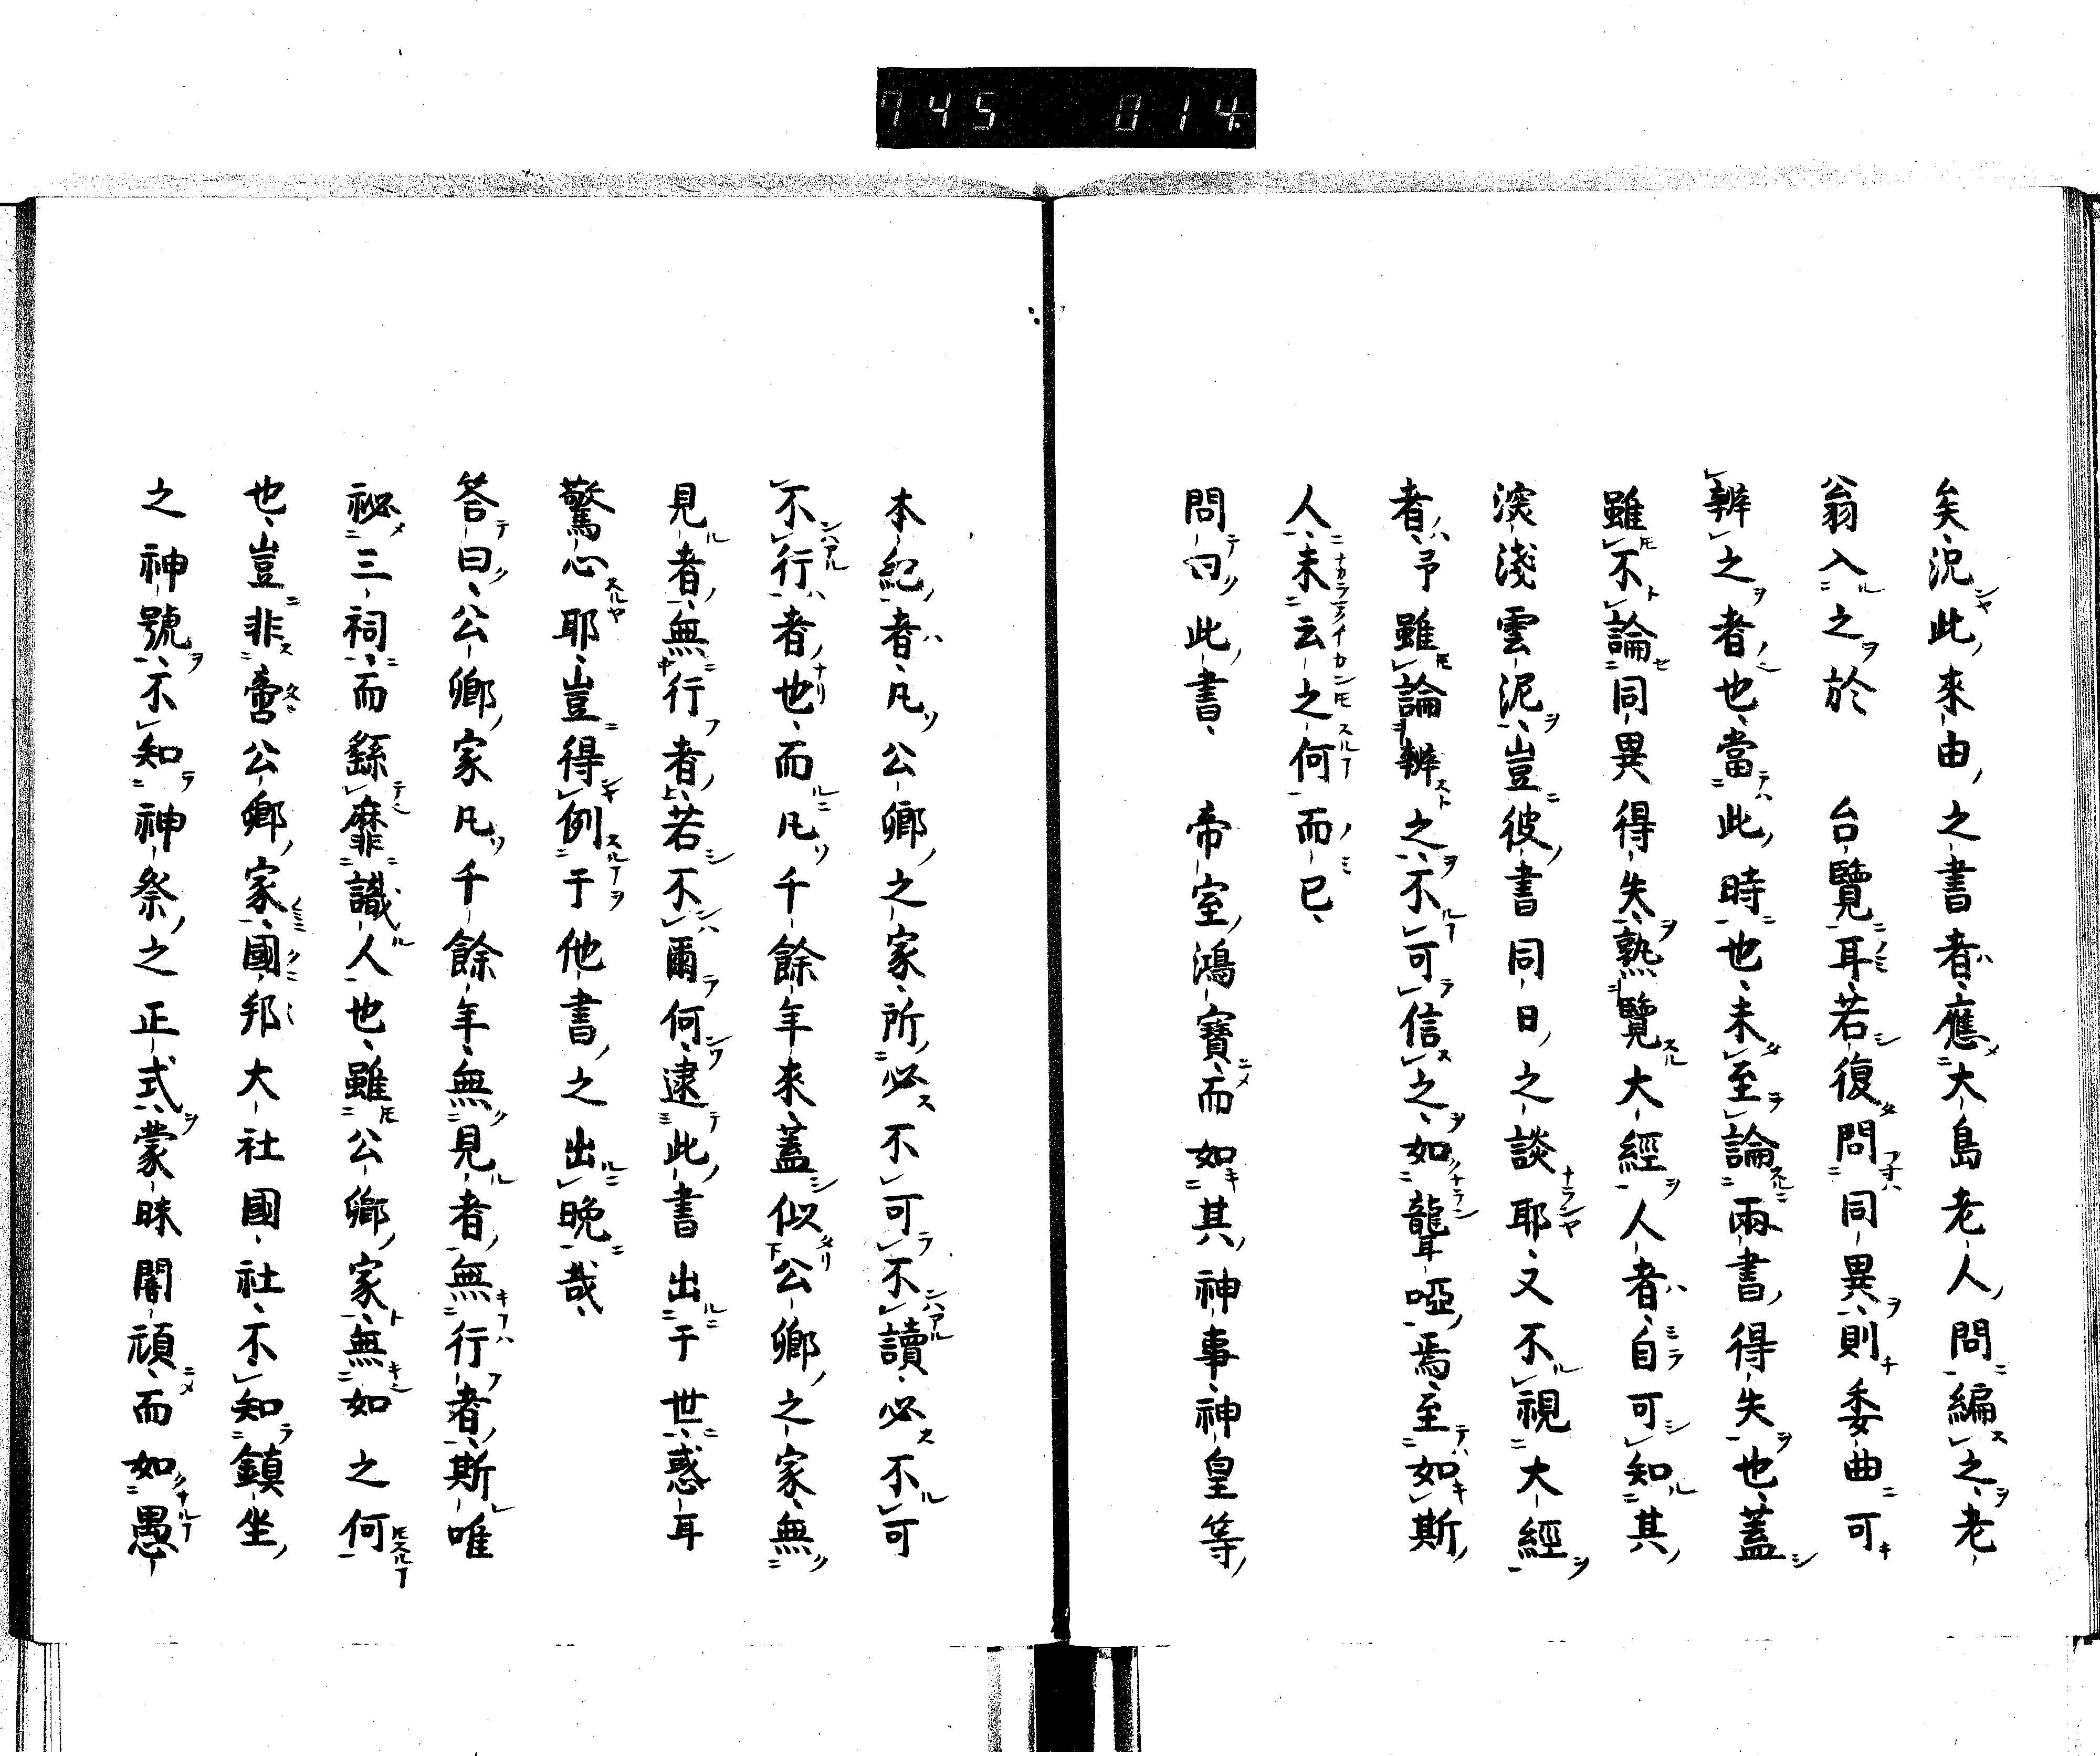 745 014
矣、況此來由之書者、應大島老人問編之、老
翁入之於　台覽耳、若復問同異、則委曲可
辨之者也、當此時也、未至論兩書得失也、蓋
雖不論同異得失、熟覽大經人者、自可知其
深淺雲泥、豈彼書同日之談耶、又不視大經
者、予雖論辨之、不可信之、如聾啞焉、至如斯
人、未云之何而已、
問曰、此書、　帝室鴻寶、而如其神事、神皇等
本紀者、凡公卿之家、所必不可不讀、必不可
不行者也、而凡千餘年來、蓋似公卿之家、無
見者、無行者、若不爾何、逮此書出于世、惑耳
驚心耶、豈得例于他書之出晚哉、
答曰、公卿家凡千餘年、無見者、無行者、斯唯
祕三祠、而繇靡識人也、雖公卿家、無如之何
也、豈非啻公卿家、國邦大社國社、不知鎮坐
之神號、不知神祭之正式、蒙昧闇頑、而如愚